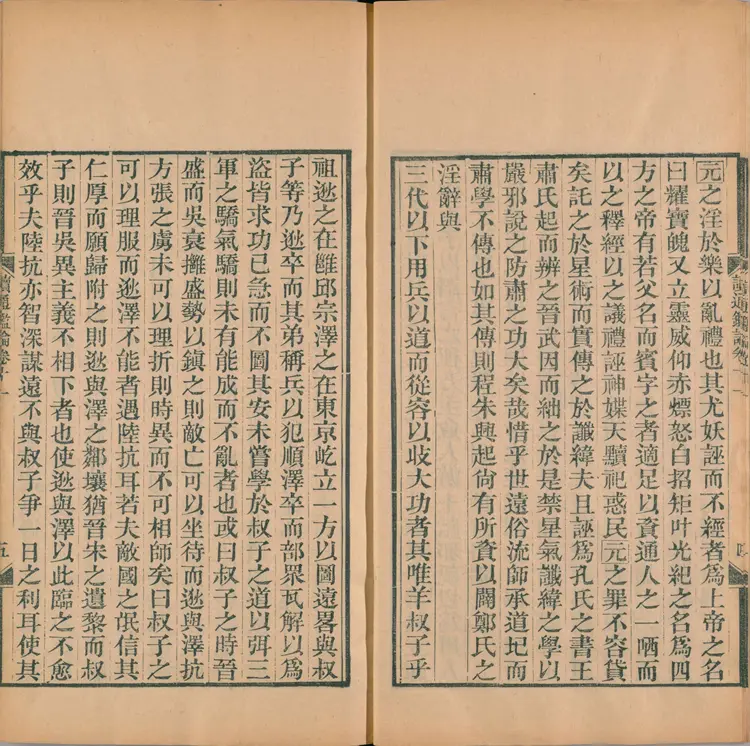 元之淫於樂以亂禮也其尤妖誣而不經者爲上帝之名
曰耀寶魄又立靈威仰赤熛怒白招矩叶光紀之名爲四
方之帝有若父名而賓字之者適足以資通人之一哂而
以之釋經以之議禮誣神媟天黷祀惑民元之罪不容貸
矣託之於星術而實傳之於讖緯夫且誣爲孔氏之書王
肅氏起而辨之晉武因而絀之於是禁星氣讖緯之學以
嚴邪說之防肅之功大矣哉惜乎世遠俗流師承道圮而
肅學不傳也如其傳則程朱興起尙有所資以闢鄭氏之
淫辭與
三代以下用兵以道而從容以收大功者其唯羊叔子乎
祖逖之在雝邱宗澤之在東京屹立一方以圖遠畧與叔
子等乃逖卒而其弟稱兵以犯順澤卒而部眾瓦解以爲
盜皆求功已急而不圖其安未嘗學於叔子之道以弭三
軍之驕氣驕則未有能成而不亂者也或曰叔子之時晉
盛而吳衰擁盛勢以鎮之則敵亡可以坐待而逖與澤抗
方張之虜未可以理折則時異而不可相師矣曰叔子之
可以理服而逖澤不能者遇陸抗耳若夫敵國之氓信其
仁厚而願歸附之則逖與澤之鄰壤猶晉宋之遺黎而叔
子則晉吳異主義不相下者也使逖與澤以此臨之不愈
效乎夫陸抗亦智深謀遠不與叔子爭一日之利耳使其
讀通鑑論卷十一
五